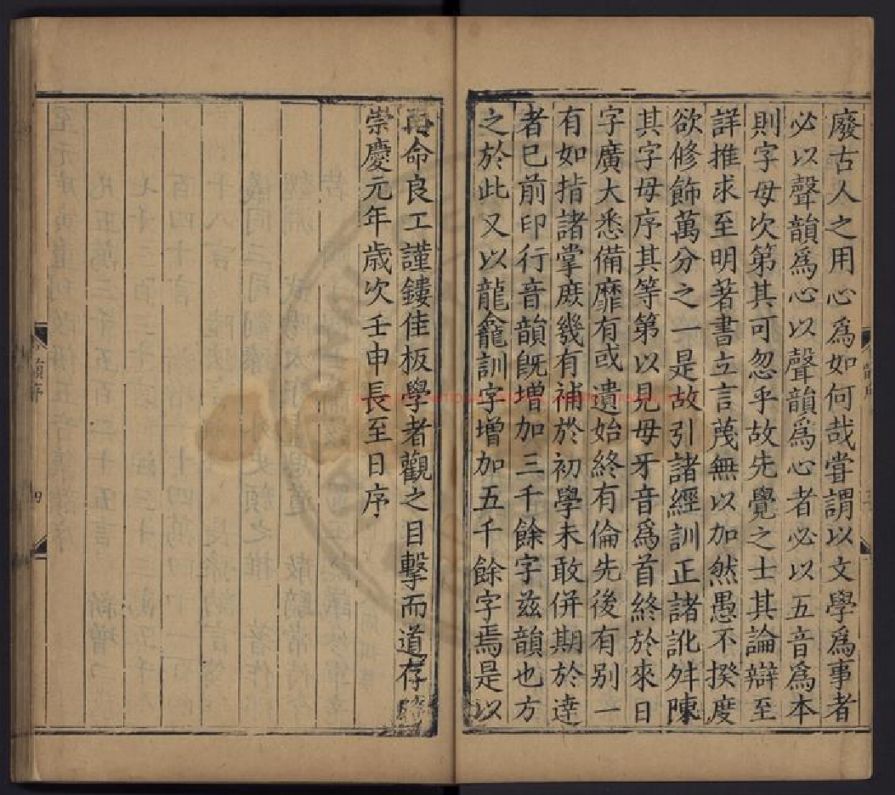 廢古人之用心為如何哉嘗謂以文學為事者
必以聲韻為心以聲韻為心者必以五音為本
則字母次第其可忽乎故先覺之士其論辯至
詳推求至明著書立言蔑無以加然愚不揆度
欲修飾萬分之一是故引諸經訓正諸訛舛陳
其字母序其等第以見母牙音為首終於來日
字廣大悉備靡有或遺始終有倫先後有别一
有如指諸掌庶幾有補於初學未敢併期於達
者已前印行音韻既增加三千餘字兹韻也方
之於此又以龍龕訓字增加五千餘字焉是以
再命良工謹鏤佳板學者觀之目擊而道存
崇慶元年歲次壬申長至日序
韻序
四